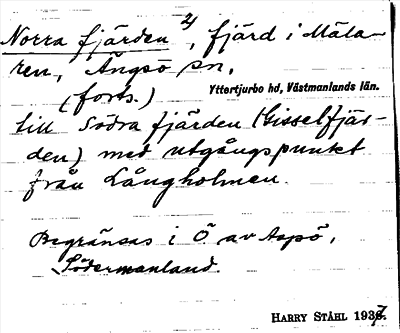 Norra fjärden 2), fjärd i Mäla-
ren, Ängsö sn,
(forts.) Yttertjurbo hd, Västmanlands län.
till Södra fjärden (Gisselfjär-
den) med utgångspunkt
från Långholmen.
Begränsas i Ö av Aspö,
Södermanland.
HARRY STÅHL 1937.